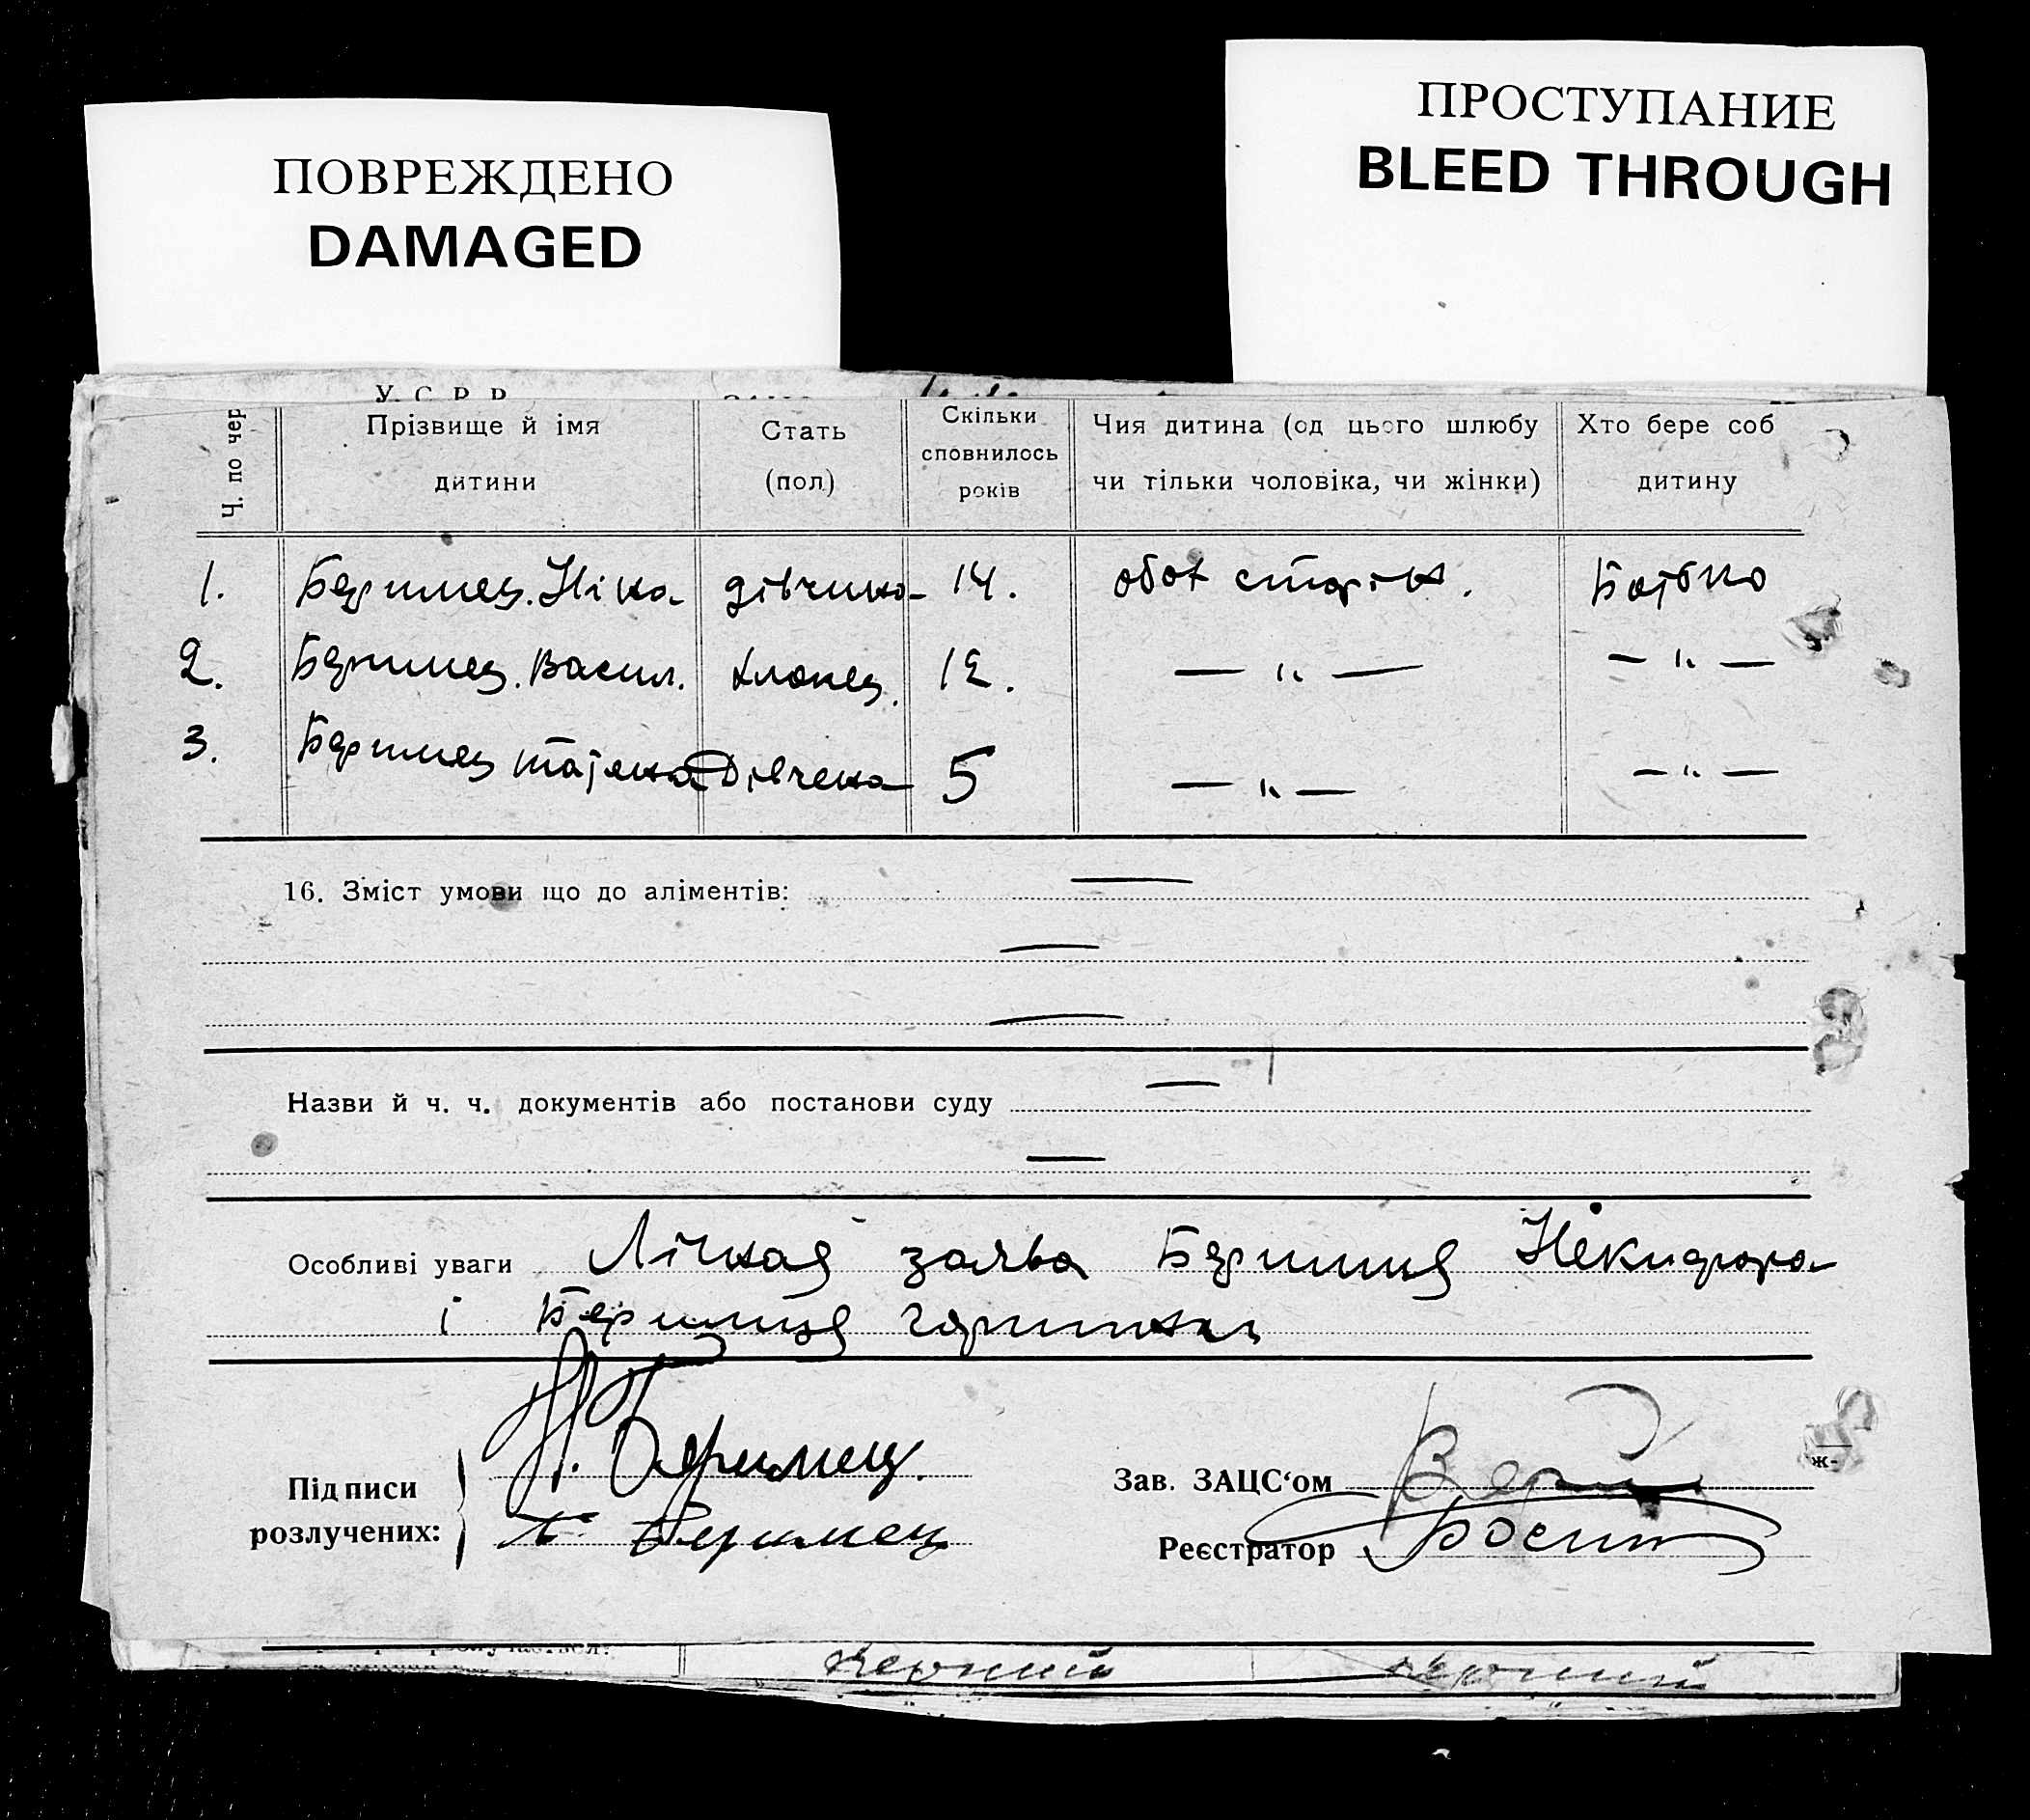 ПОВРЕЖДЕНО
DAMAGED
ПРОСТУПАНИЕ
BLEED THROUGH
У. С. Р. Р.
Ч. по чер
Прізвище й імя
дитини
Стать
(пол)
Скільки
сповнилось
років
Чия дитина (од цього шлюбу
чи тільки чоловіка, чи жінки)
Хто бере соб
дитину
1. Беримец. Ніна дівчина 14. обох сторін. Батько
2. Беримец. Васил. хлопец. 12. — „ — — „ —
3. Беримец Татяна Дівчена 5 — „ — — „ —
16. Зміст умови що до аліментів: —
—
—
Назви й ч. ч. документів або постанови суду —
—
Особливі уваги заява Беримця
і Беримця
Підписи
розлучених:
Н. Беримец.
Беримец
Зав. ЗАЦС‘ом
Реєстратор
ж-